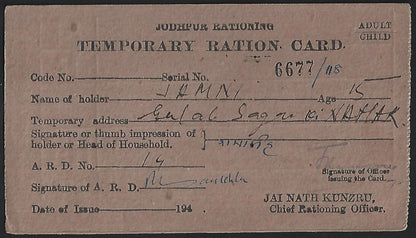 JODHPUR RATIONING
ADULT
CHILD
TEMPORARY RATION CARD.
Code No. Serial No. 6677/118
Name of holder JAMNI Age 15
Temporary address Gulab Sagar ki NAHAR
Signature or thumb impression of
holder or Head of Household.
A. R. D. No. 14
Signature of A. R. D.
Signature of Officer
Issuing the Card.
Date of Issue 194 .
JAI NATH KUNZRU,
Chief Rationing Officer.